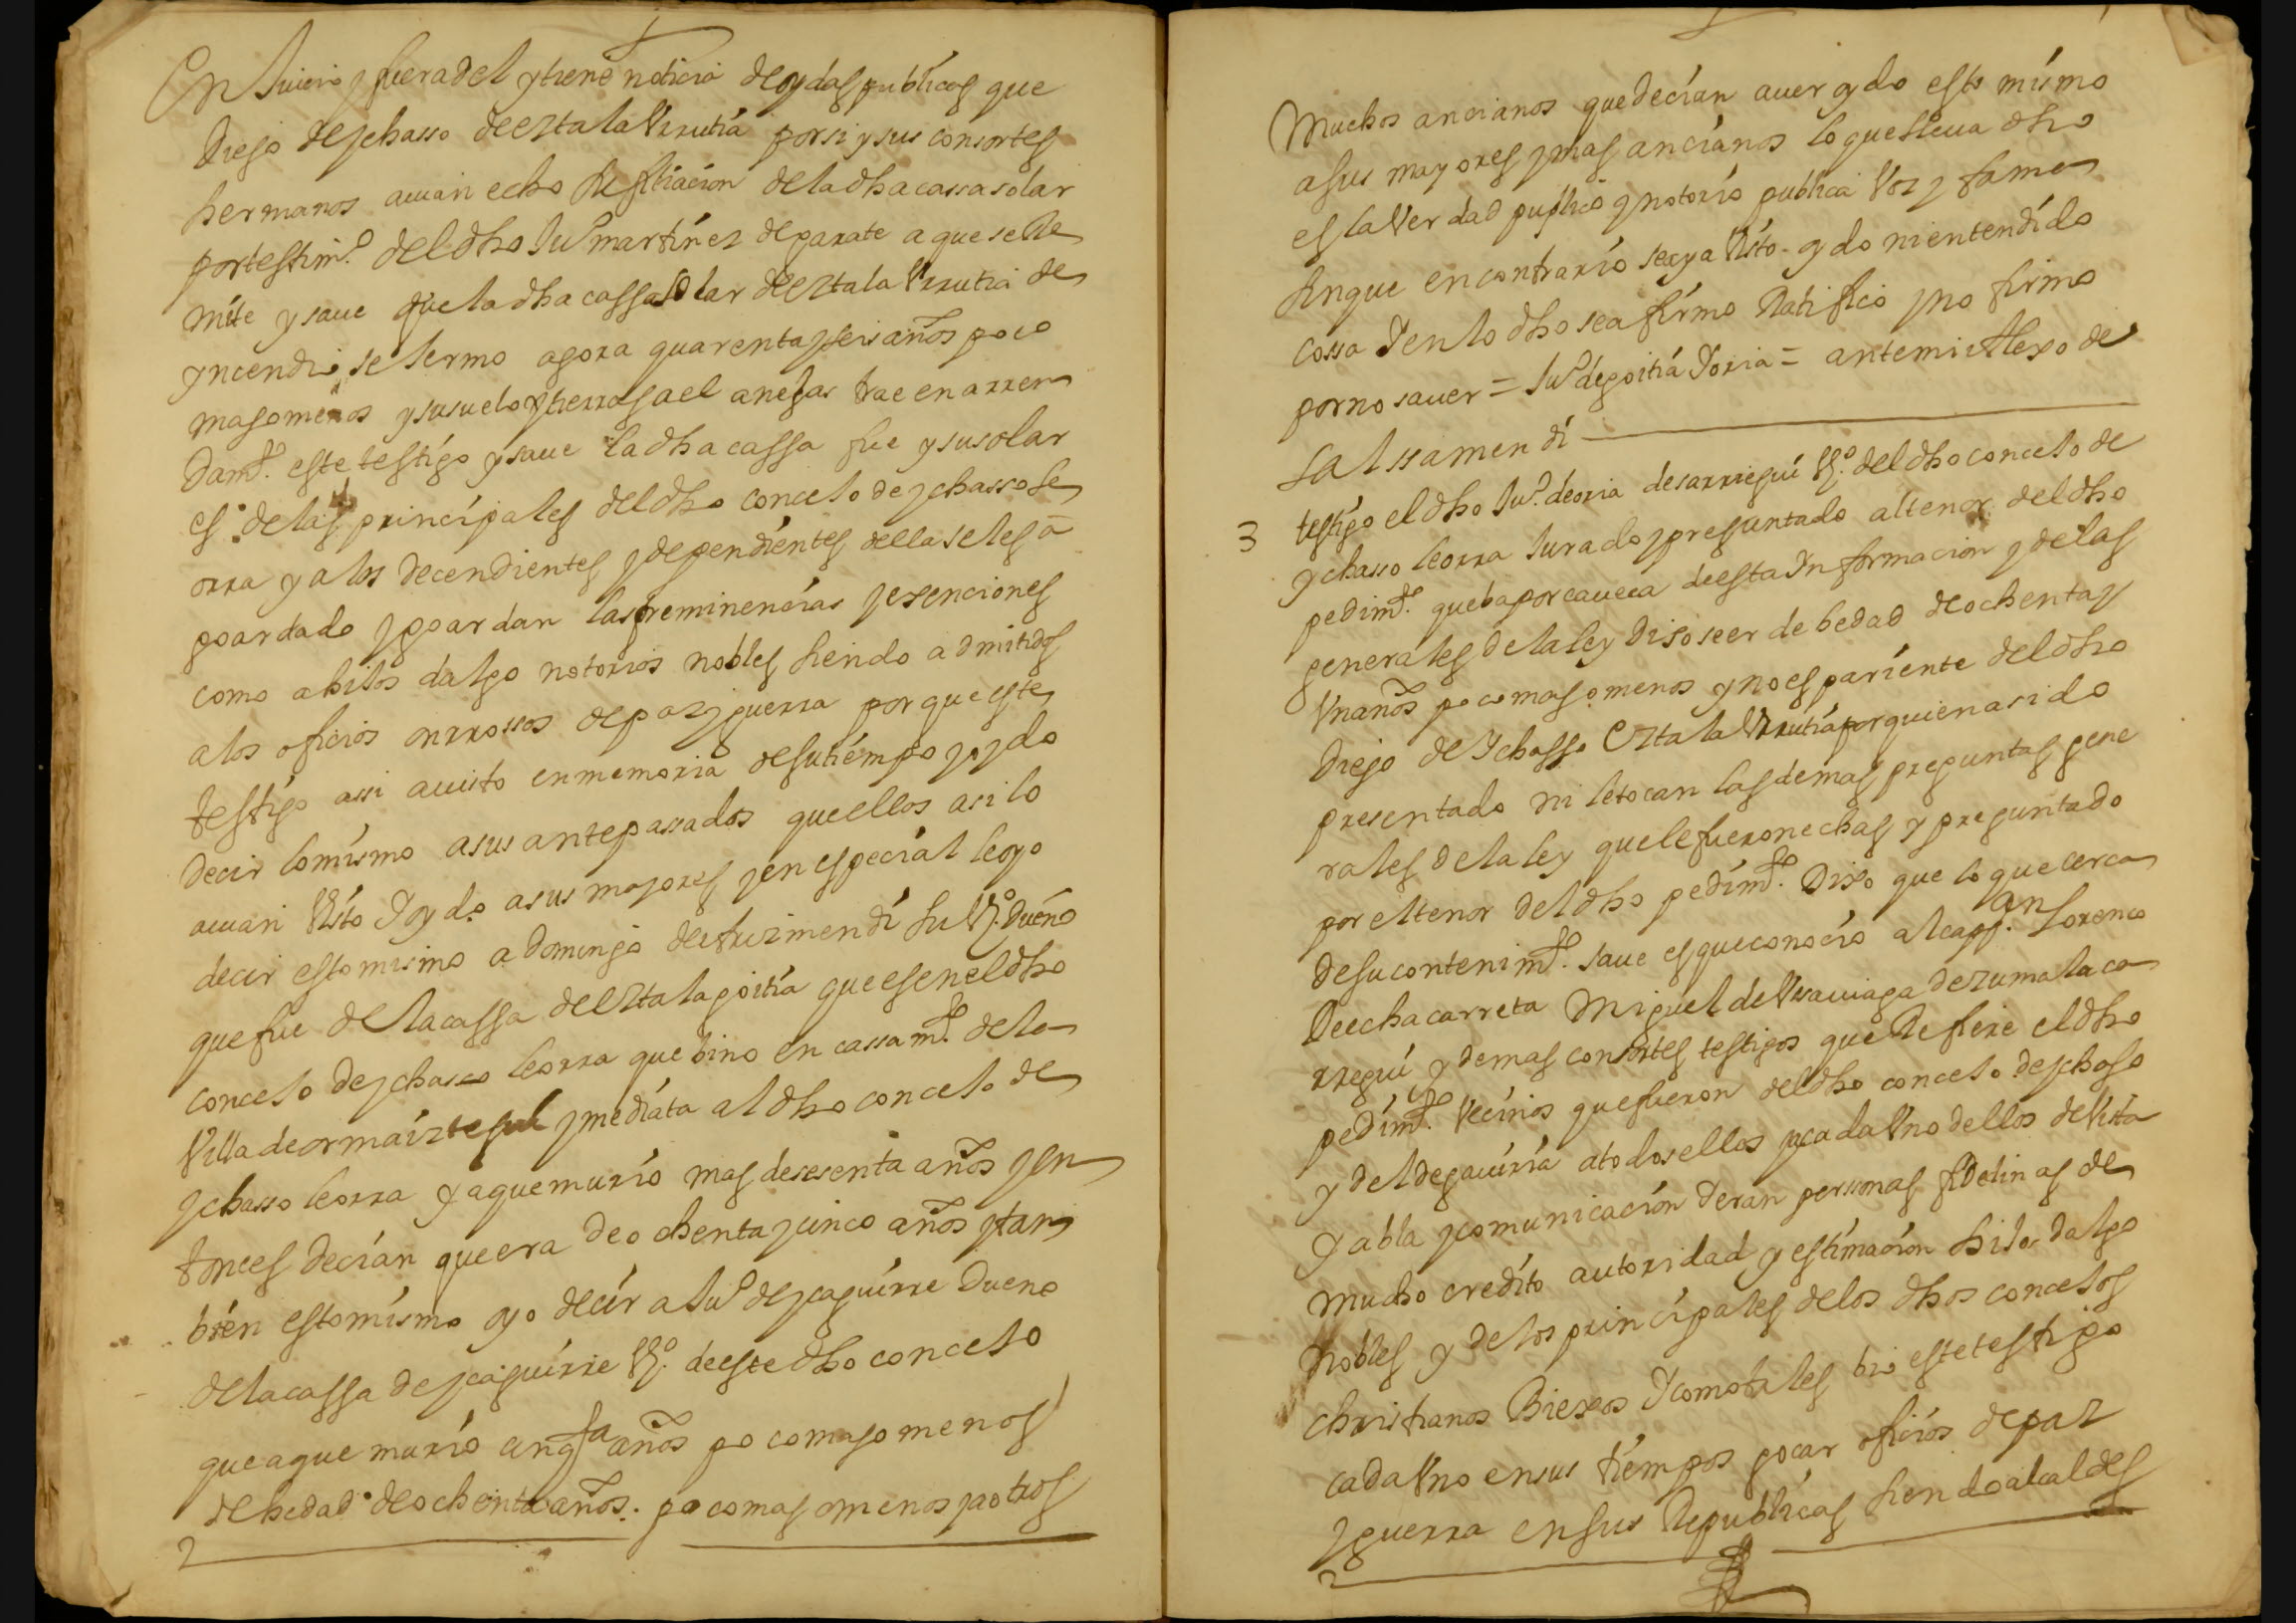 En Juicio y fuera del y tiene noticia de oydas publicas que
Diego de ychasso de eztala Vrrutia por si y sus consortes
hermanos auian echo su filiacion de la dha cassa solar
por testimo. del dho Juo martinez de parate a que se Re
mite y saue que la dha cassa solar de eztala Vrrutia de
yncendio se hermo agora quarenta y seis años poco
mas o menos y su suelo y tierras a el anejas trae en arren
damto. este testigo y saue la dha cassa fue y su solar
es de las principales del dho concejo de ychasso Be
orra y a los decendientes y dependientes della se les a
goardado y goardan las preminencias y exenciones
como a hijos dalgo notorios nobles siendo admitidos
a los oficios onrrossos de paz y guerra porque este
testigo assi a uisto en memoria de su tiempo y oydo
decir lo mismo a sus antepassados que ellos asi lo
auian Visto y oydo a sus mayores y en especial le oyo
decir esto mismo a Domingo de su Vo. Dueño
que fue de la cassa de eztala goitia que es en el dho
concejo de ychasso beorra que bino en cassamto. de la
Villa de ormaiztegui ymediata al dho concejo de
ychasso beorra y a que murio mas de sesenta años y en
tonces decian que era de ochenta y cinco años y tam
bien esto mismo oyo decir a Juo de ycaguirre Dueno
de la cassa de ycaguirre Vo. de este dho concejo
que a que murio cinqta años poco mas o menos
de hedad de ochenta años. poco mas o menos y a otros
2
Muchos ancianos que decian auer oydo esto mismo
a sus mayores y mas ancianos lo que lleua dho
es la Verdad publico y notorio publica Voz y fama
sin que en contrario seaya Visto oydo ni entendido
cossa Y en lo dho se afirmo Ratifico y no firmo
por no sauer = Juo de goitia Yoria = ante mi Alexo de
Salssamendi
3 testigo el dho Juo. de oria de sarriegui Vo. del dho concejo de
ychasso beorra Jurado y preguntado al tenor del dho
pedimto. que ba por caueca de esta Informacion y de las
generales de la ley Dijo seer de hedad de ochenta y
Vn años poco mas o menos y no es pariente del dho
Diego de Ychasso Eztala Vrrutia por quien a sido
presentado ni le tocan las demas preguntas gene
rales de la ley que le fueron echas y preguntado
por el tenor del dho pedimto. Dixo que lo que cerca
de su contenimto. saue es que conocio al capan. Lorenco
De echacarreta Miguel de Vssauiaga de zumalaca
rregui y demas consortes testigos que Refiere el dho
pedimto. Vecinos que fueron del dho concejo de ychaso
y del de gauiria a todos ellos y cada Vno dellos de Vista
Y abla y comunicacion Y eran personas fidelinas de
mucho credito autoridad y estimacion hijos dalgo
nobles y de los principales de los dhos concejos
christianos Biexos Y como tales bio este testigo
cada Vno en sus tiempos gocar oficios de paz
y guerra en sus Republicas siendo alcaldes
2